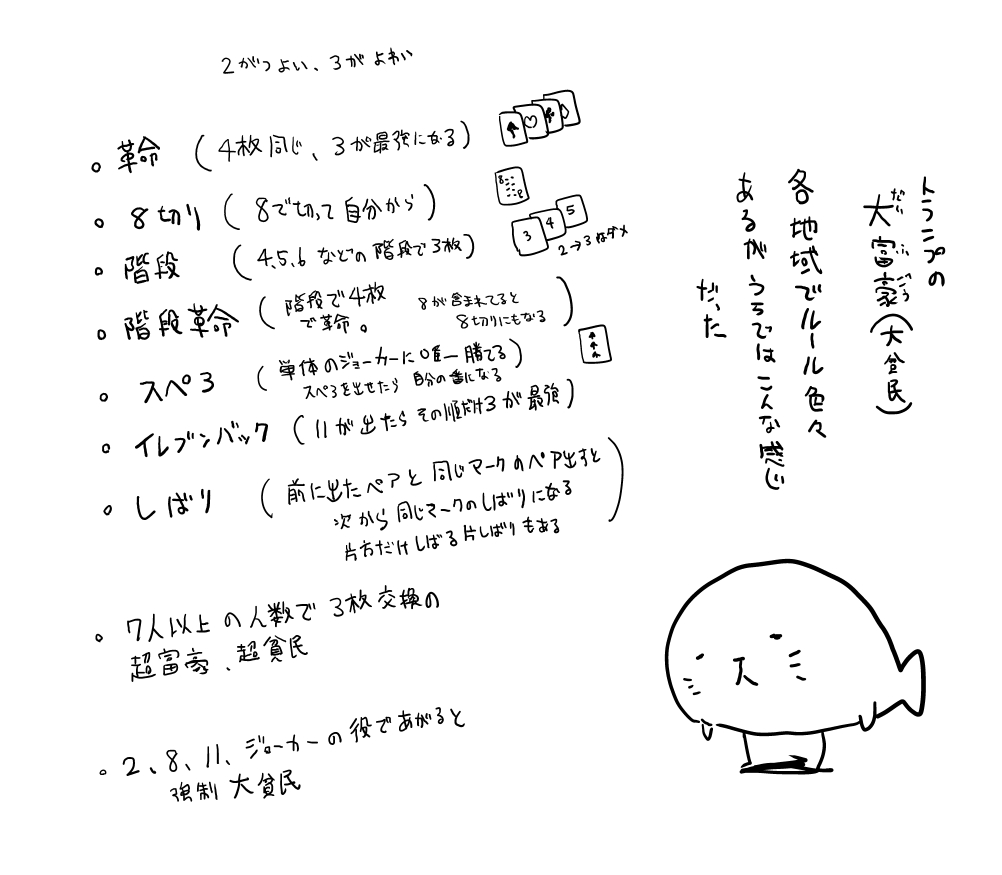 トランプの
大富豪(大貧民)
だい ふ ごう
各地域でルール色々
あるがうちではこんな感じ
だった
2がつよい、3がよわい
。革命 (4枚同じ、3が最強になる)
。8切り (8で切って自分から)
8 8
。階段 (4,5,6などの階段で3枚)
3 4 5
2→3はダメ
。階段革命 (階段で4枚
で革命。
8が含まれてると
8切りにもなる)
。スペ3 (単体のジョーカーに唯一勝てる
スペ3を出せたら 自分の番になる)
。イレブンバック (11が出たらその順だけ3が最強)
。しばり (前に出たペアと同じマークのペア出すと
次から同じマークのしばりになる
片方だけしばる片しばりもある)
。7人以上の人数で3枚交換の
超富豪、超貧民
。2、8、11、ジョーカーの役であがると
強制大貧民